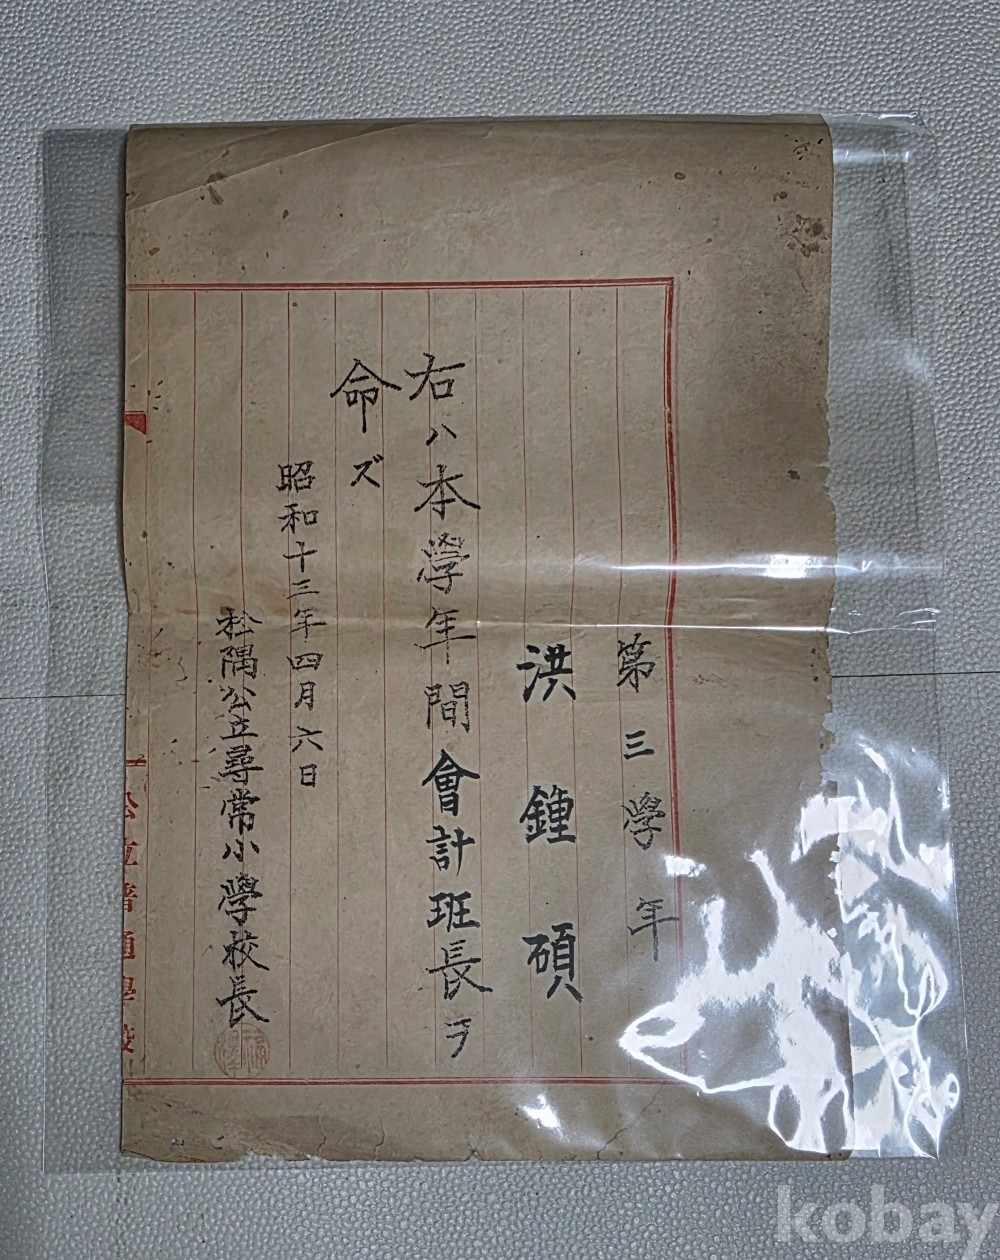 第三学年
洪鍾碩
右ハ本學年間會計班長ヲ
命ズ
昭和十三年四月六日
松隅公立尋常小學校長
公立普通學校
kobay